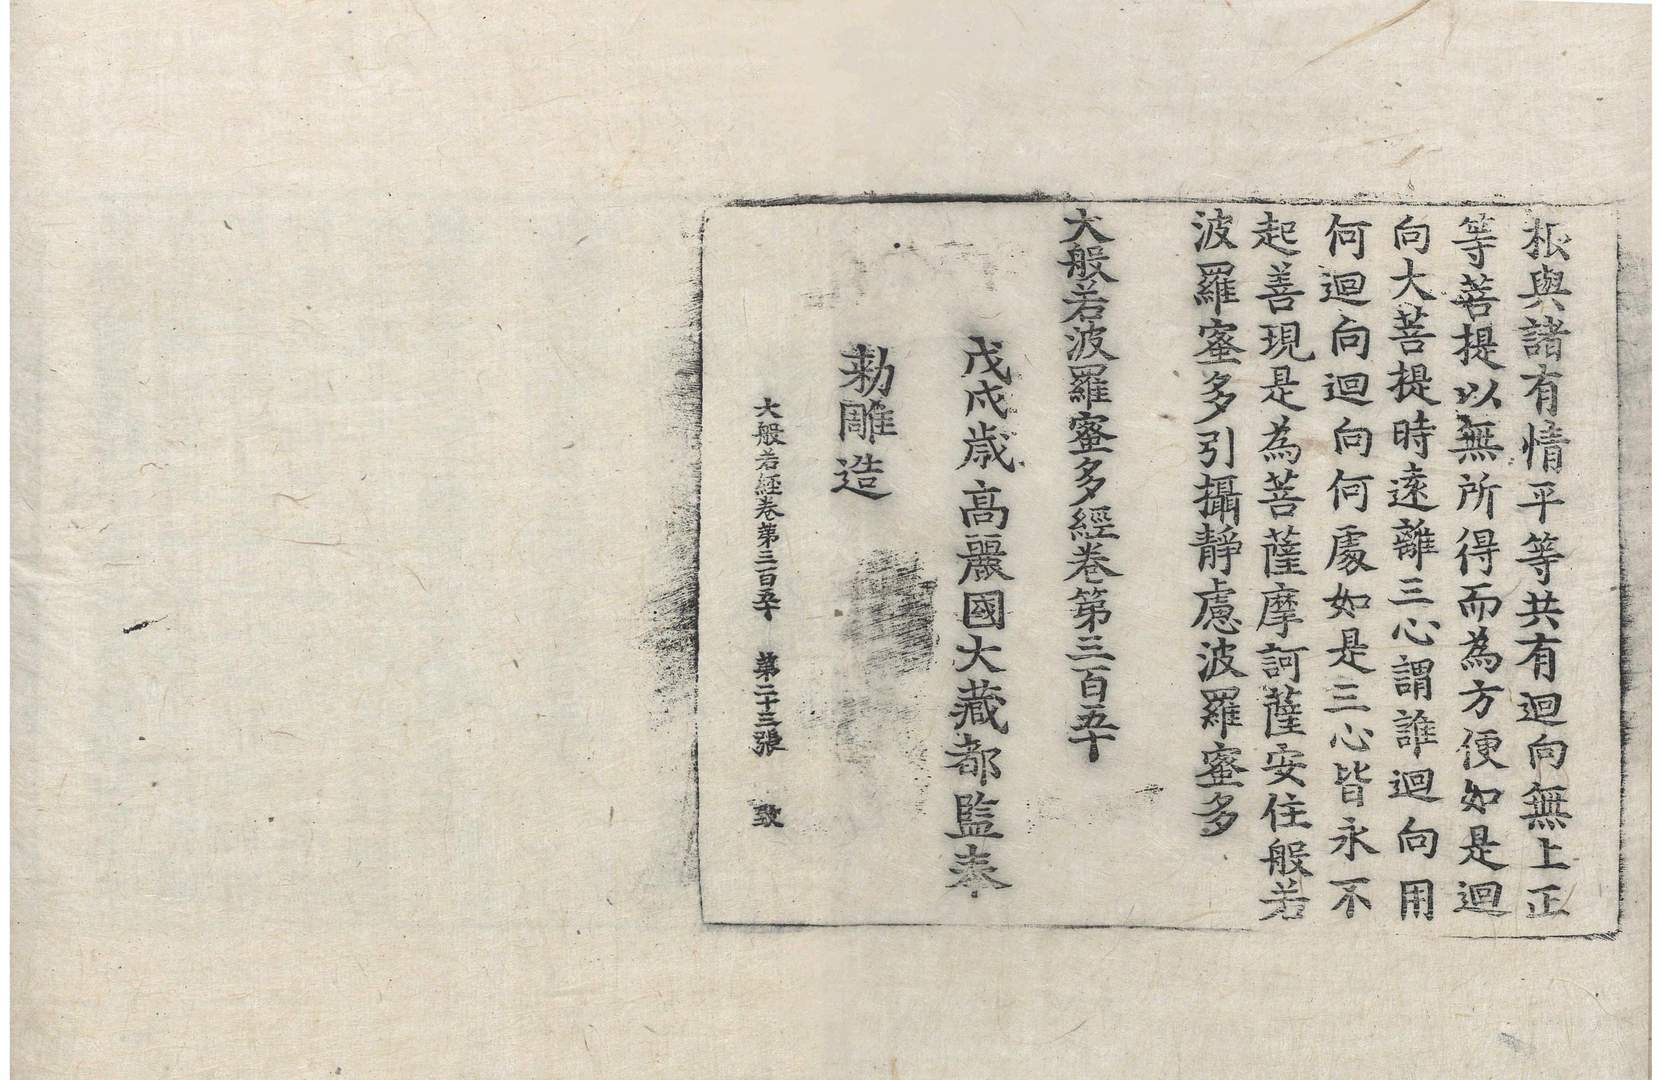 根與諸有情平等共有迴向無上正
等菩提以無所得而為方便如是迴
向大菩提時遠離三心謂誰迴向用
何迴向迴向何處如是三心皆永不
起善現是為菩薩摩訶薩安住般若
波羅蜜多引攝靜慮波羅蜜多
大般若波羅蜜多經卷第三百五十
戊戌歲高麗國大藏都監奉
勅雕造
大般若経卷第三百五十 第二十三張 致